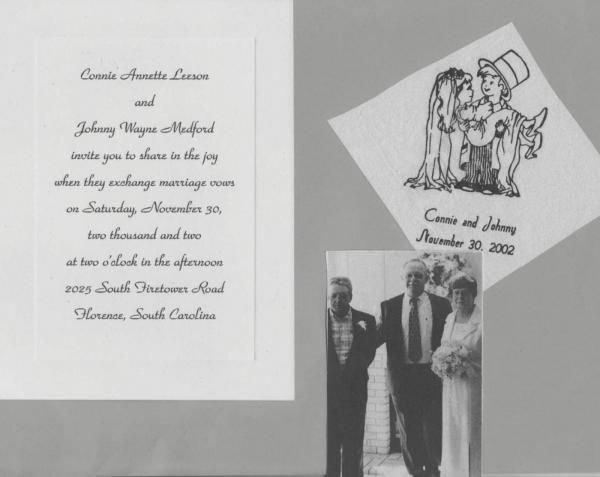 Connie Annette Leeson
and
Johnny Wayne Medford
invite you to share in the joy
when they exchange marriage vows
on Saturday, November 30,
two thousand and two
at two o'clock in the afternoon
2025 South Firetower Road
Florence, South Carolina
Connie and Johnny
November 30, 2002